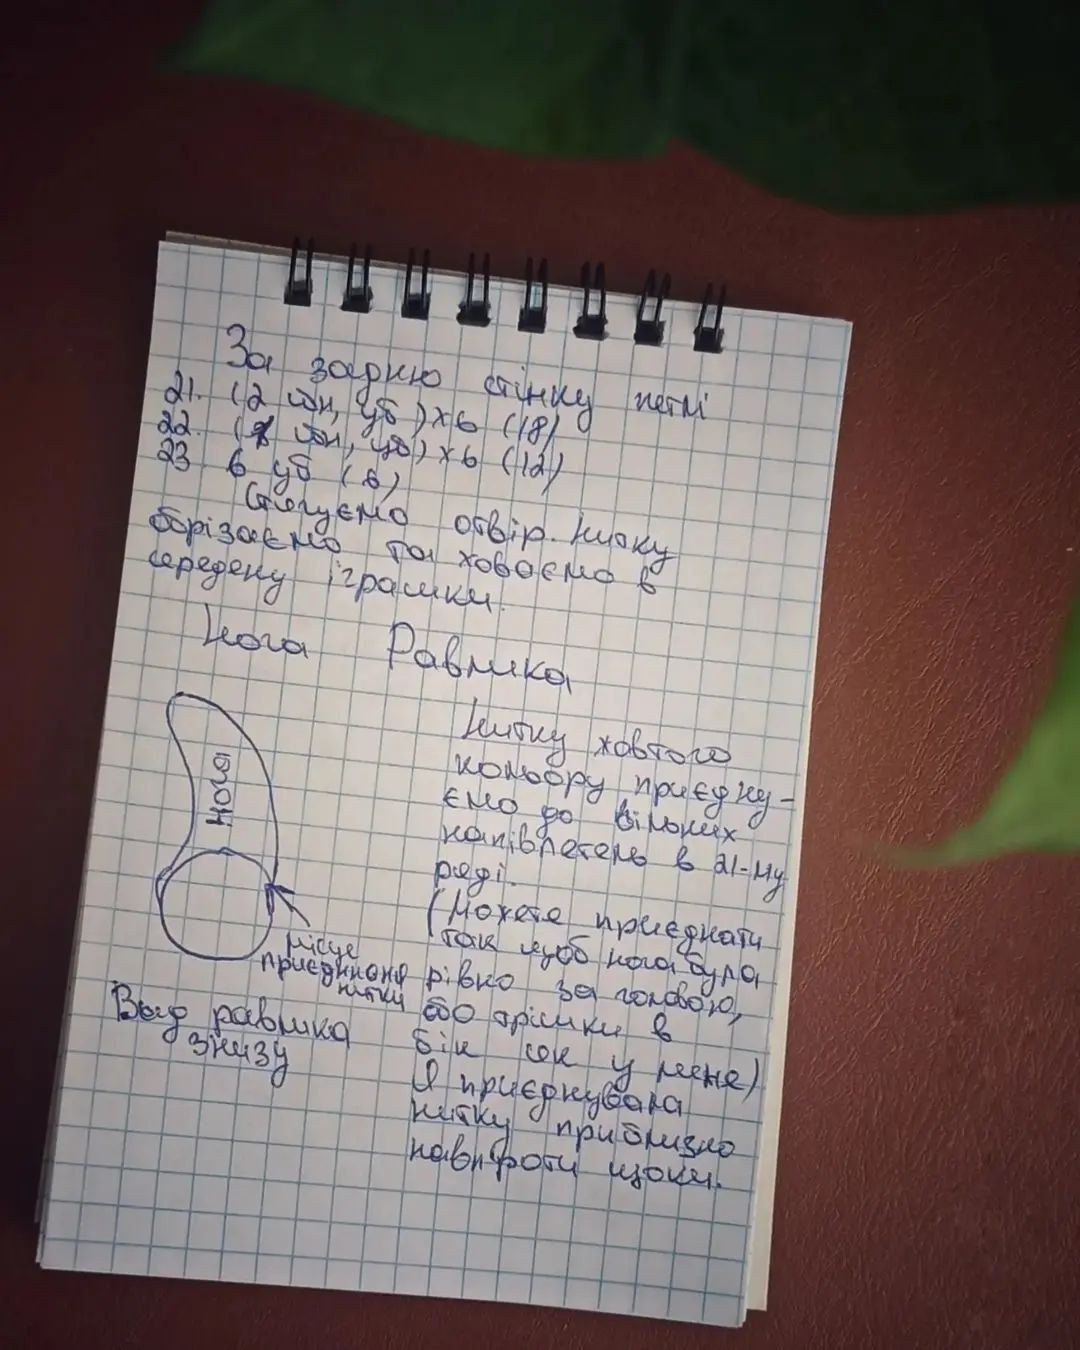 За задню стінку петлі
21. (2 збн, уб) х 6 (18)
22. (1 збн, уб) х 6 (12)
23 6 уб (6)
Стягуємо отвір. Нитку
обрізаємо та ховаємо в
середену іграшки.
Нога Равлика
Нога
місце
приєднання
нитки
Вид равлика
знизу
Нитку жовтого
кольору приєдну-
ємо до вільних
напівпетель в 21-му
ряді.
(Можете приєднати
так щоб нога була
рівно за головою,
або трішки в
бік як у мене)
Я приєднувала
нитку приблизно
навпроти щоки.